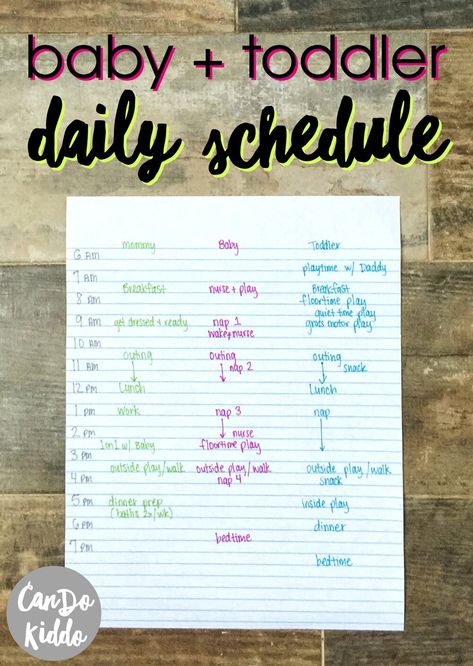 baby + toddler
daily schedule
mommy Baby Toddler
6 AM
playtime w/ Daddy
7 AM
Breakfast nurse + play Breakfast
8 AM floortime play
quiet time play
9 AM get dressed + ready nap 1 gross motor play
wake + nurse
10 AM
outing outing outing
11 AM nap 2 snack
12 PM Lunch Lunch
1 PM work nap 3 nap
2 PM nurse
1 on 1 w/ Baby floortime play
3 PM
outside play/walk outside play/walk outside play/walk
4 PM nap 4 snack
5 PM dinner prep inside play
(baths 2x/wk)
6 PM dinner
7 PM bedtime
bedtime
CanDo
Kiddo